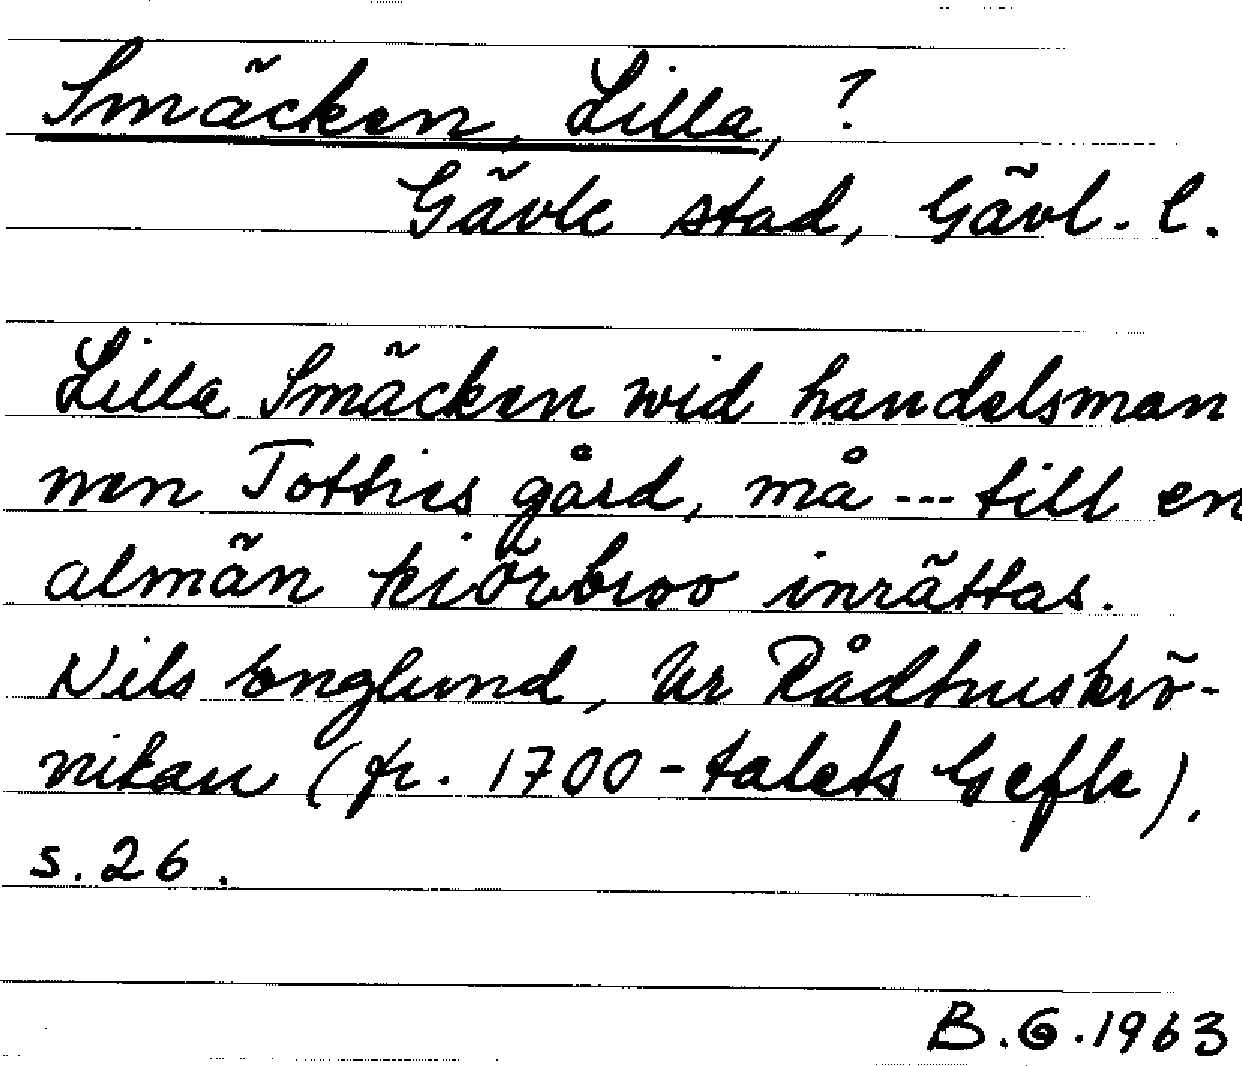 Smäcken, Lilla, ?
Gävle stad, Gävl. l.
Lilla Smäcken wid handelsman
nen Totties gård, må --- till en
almän kiörbroo inrättas.
Nils Englund, Ur Rådhuskrö-
nikan (fr. 1700-talets Gefle),
s. 26.
B.G.1963